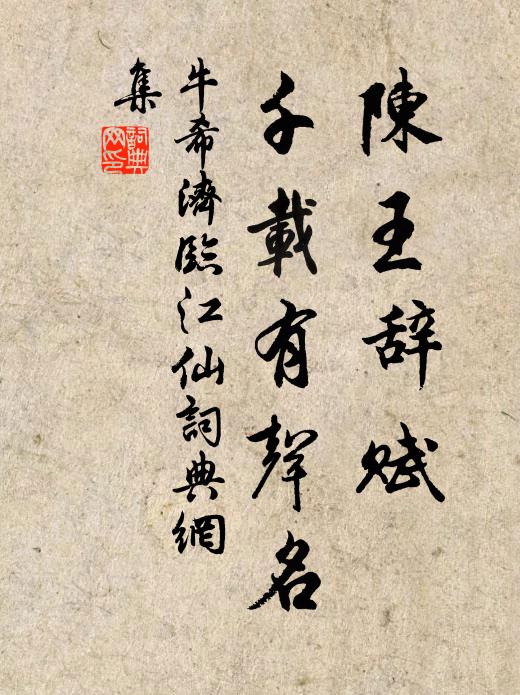 陳王辞賦
千載有聲名
牛希濟臨江仙詞典網
集
詞典網印